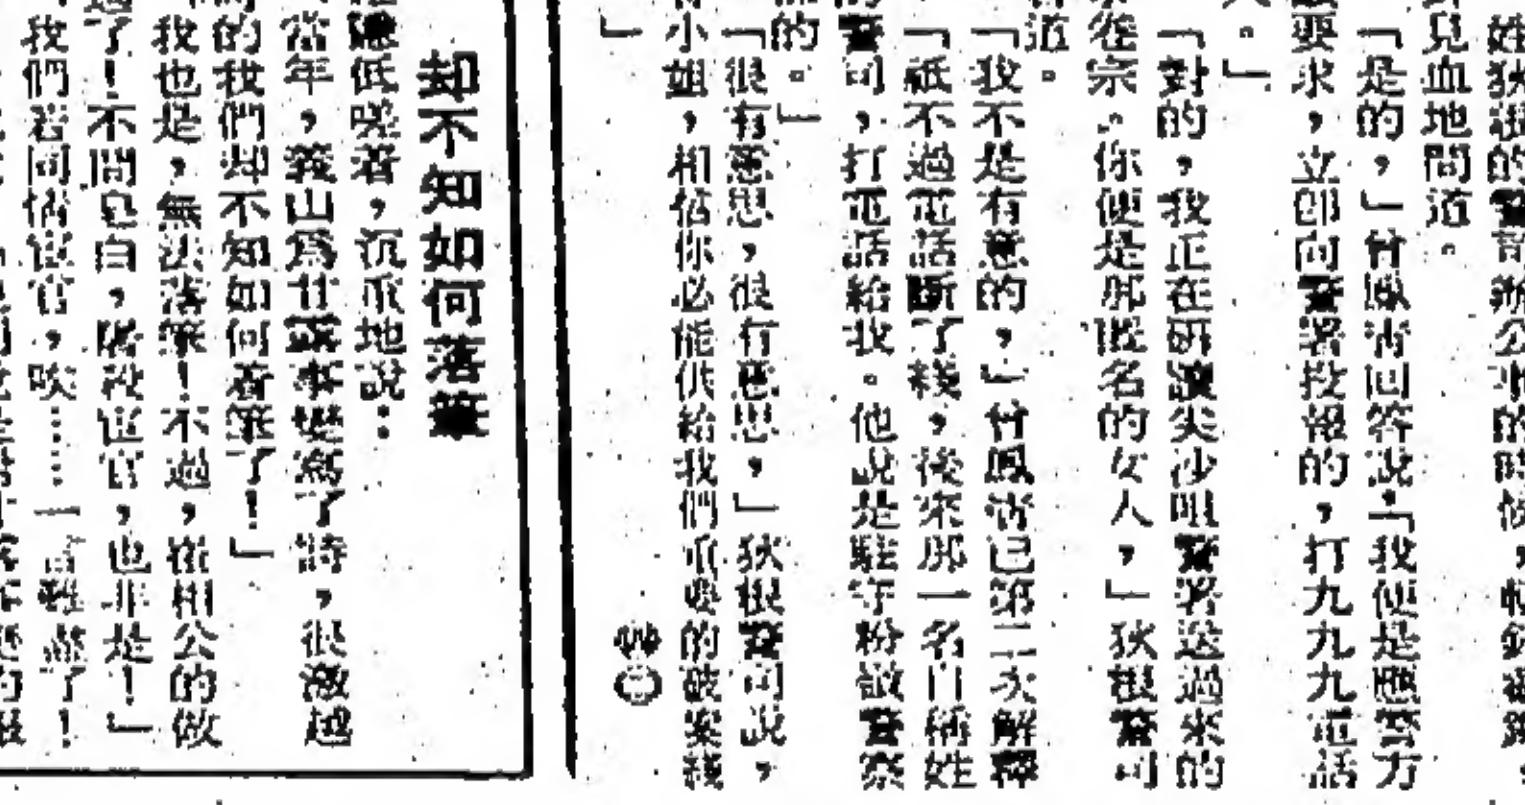 姓狄根的警司辦公地的時候，
見血地問道。
「是的，」曾鳳淸回答說：「我便是應警方
要求，立卽向警署投報的，打九九九電話
。」
「對的，我正在研讀尖沙咀警署送過來的
卷宗。你便是那匿名的女人，」狄根警司
道。
「我不是有意的，」曾鳳淸已第二次解釋
「祇不過電話斷了綫，後來那一名自稱姓
警司，打電話給我。他說是駐守粉嶺警察
的。」
「很有意思，很有意思，」狄根警司說，
小姐，相信你必能供給我們重要的破案綫
」
却不知如何落筆
低嘆着，沉重地說：
當年，義山爲甘露事變寫了詩，很激越
的我們却不知如何着筆了！」
我也是，無法落筆！不過，崔相公的做
了！不問皂白，階段宦官，也非是！」
我們若同情宦官，唉……一言難盡了！